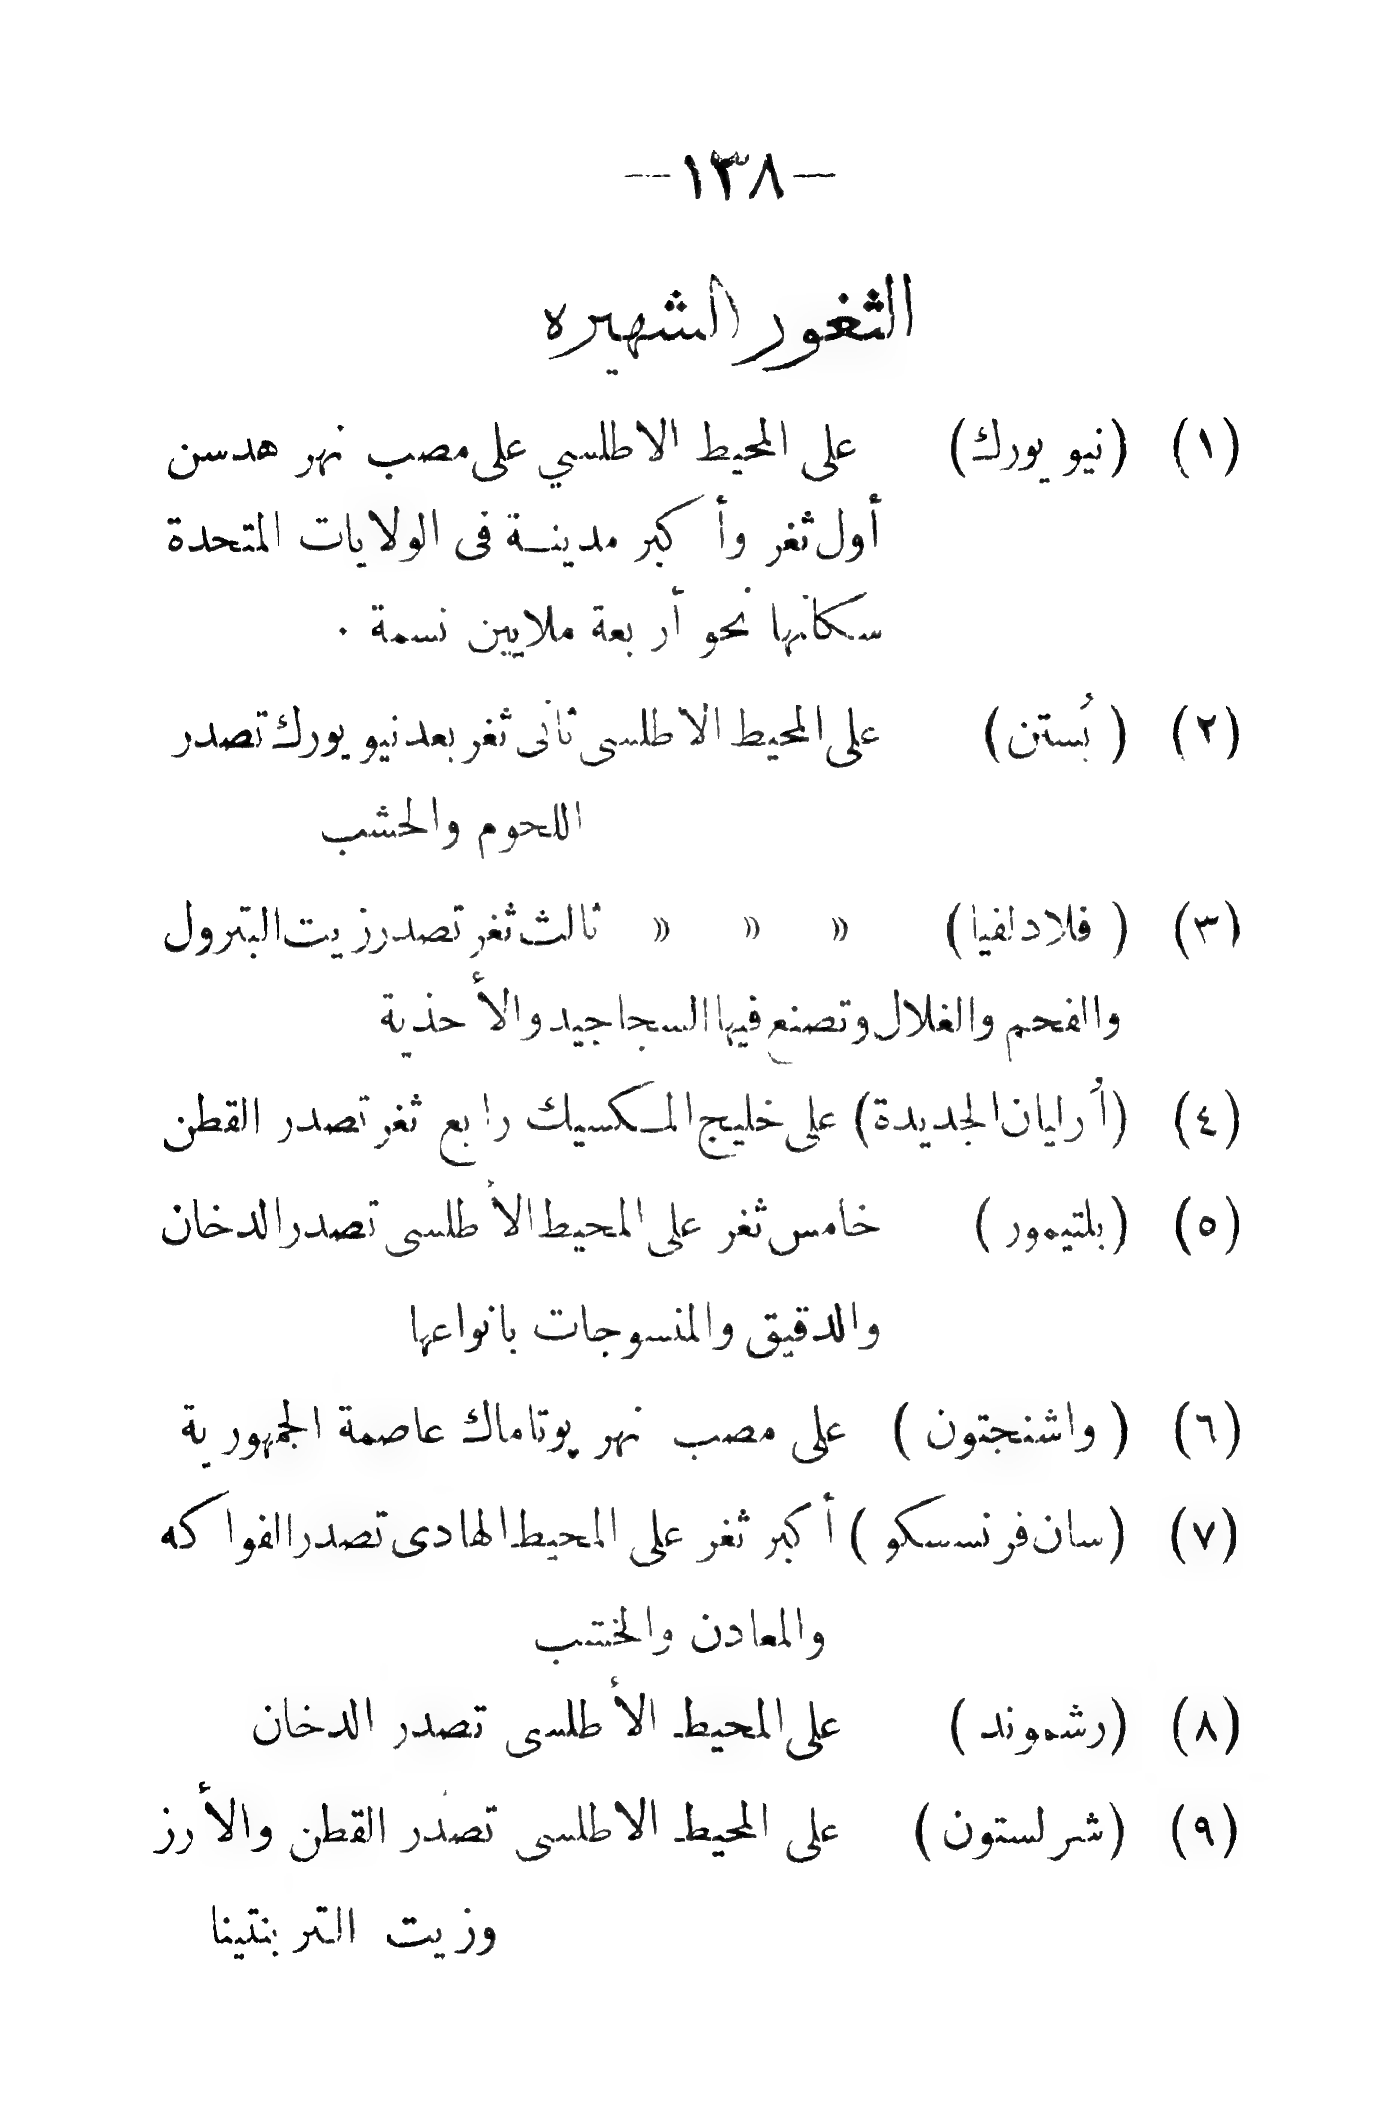 —١٣٨—
الثغور الشهيره
(١) (نيو يورك) على المحيط الاطلسي على مصب نهر هدسن
أول ثغر وأكبر مدينة فى الولايات المتحدة
سكانها نحو أربعة ملايين نسمة .
(٢) (بُستن) على المحيط الاطلسى ثانى ثغر بعد نيو يورك تصدر
اللحوم والحشب
(٣) (فلادلفيا) » » » ثالث ثغر تصدر زيت البترول
والفحم والغلال وتصنع فيها السجاجيد والأحذية
(٤) (أُرليان الجديدة) على خليج المكسيك رابع ثغر تصدر القطن
(٥) (بلتيمور) خامس ثغر على المحيط الأطلسى تصدر الدخان
والدقيق والمنسوجات بانواعها
(٦) (واشنجتون) على مصب نهر پوتاماك عاصمة الجمهورية
(٧) (سان فرنسسكو) أكبر ثغر على المحيط الهادى تصدر الفواكه
والمعادن والخشب
(٨) (رشموند) على المحيط الأطلسى تصدر الدخان
(٩) (شرلستون) على المحيط الاطلسى تصدر القطن والأرز
وزيت التربنتينا